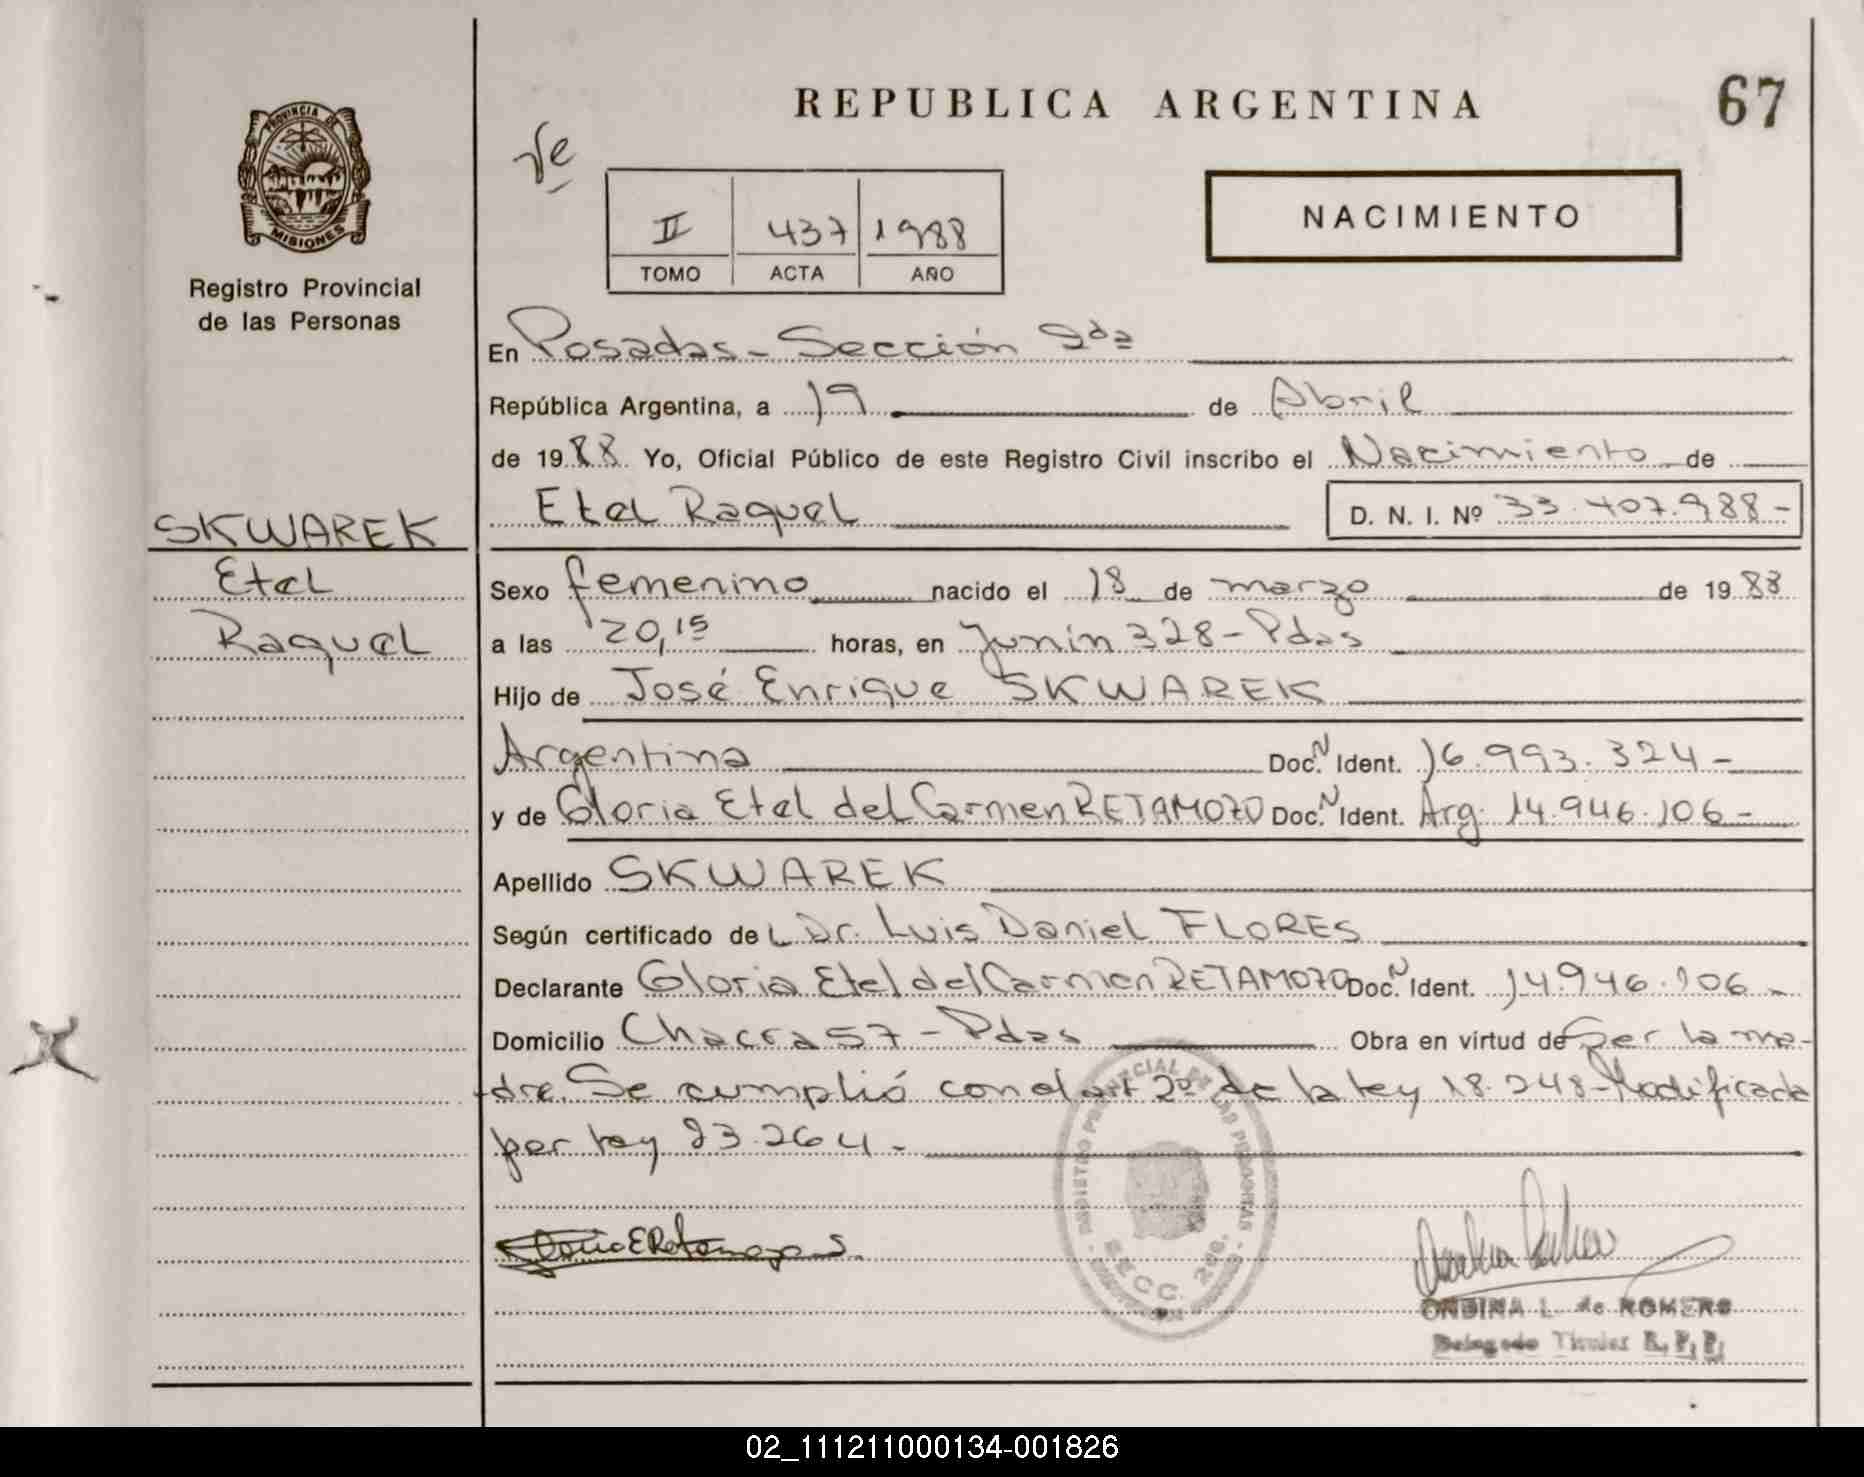 REPUBLICA ARGENTINA
67
PROVINCIA DE
MISIONES
Registro Provincial
de las Personas
II 437 1988
TOMO ACTA AÑO
NACIMIENTO
En Posadas - Sección 2da
República Argentina, a 19 de Abril
de 1988 Yo, Oficial Público de este Registro Civil inscribo el Nacimiento de
Etel Raquel D. N. I. Nº 33.407.988-
SKWAREK
Etel
Raquel
Sexo femenino nacido el 18 de marzo de 1988
a las 20,15 horas, en Junín 328 - Pdas
Hijo de José Enrique SKWAREK
Argentina Doc. N Ident. 16.993.324-
y de Gloria Etel del Carmen RETAMOZO Doc. N Ident. Arg. 14.946.106-
Apellido SKWAREK
Según certificado de L Dr. Luis Daniel FLORES
Declarante Gloria Etel del Carmen RETAMOZO Doc. N Ident. 14.946.106-
Domicilio Chacra 57 - Pdas Obra en virtud de Ser la ma-
dre. Se cumplió con el art 2º de la ley 18.248 - Modificada
por ley 23.264.-
REGISTRO PROVINCIAL DE LAS PERSONAS
SECC. 2da.
ONDINA L. de ROMERO
Delegado Titular R. P. P.
02_111211000134-001826